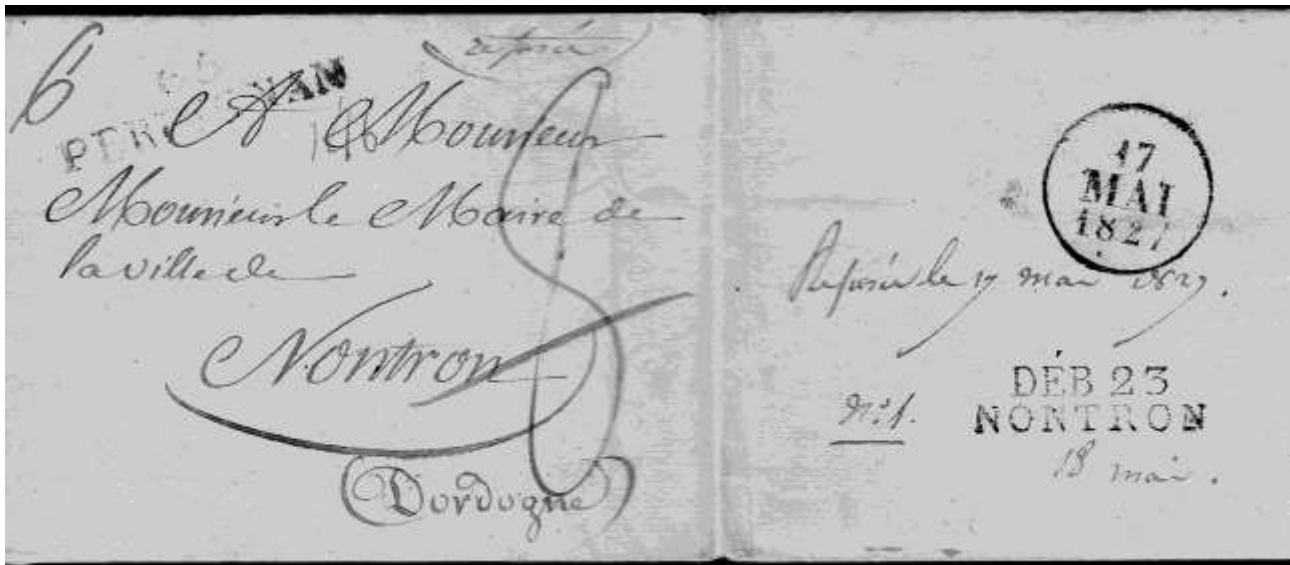 refusée
6
65
PERPIGNAN
A Monsieur
Monsieur le Maire de
la ville de
Nontron
(Dordogne)
8
17
MAI
1827
Refusée le 17 mai 1827.
N° 1.
DÉB 23
NONTRON
18 mai.